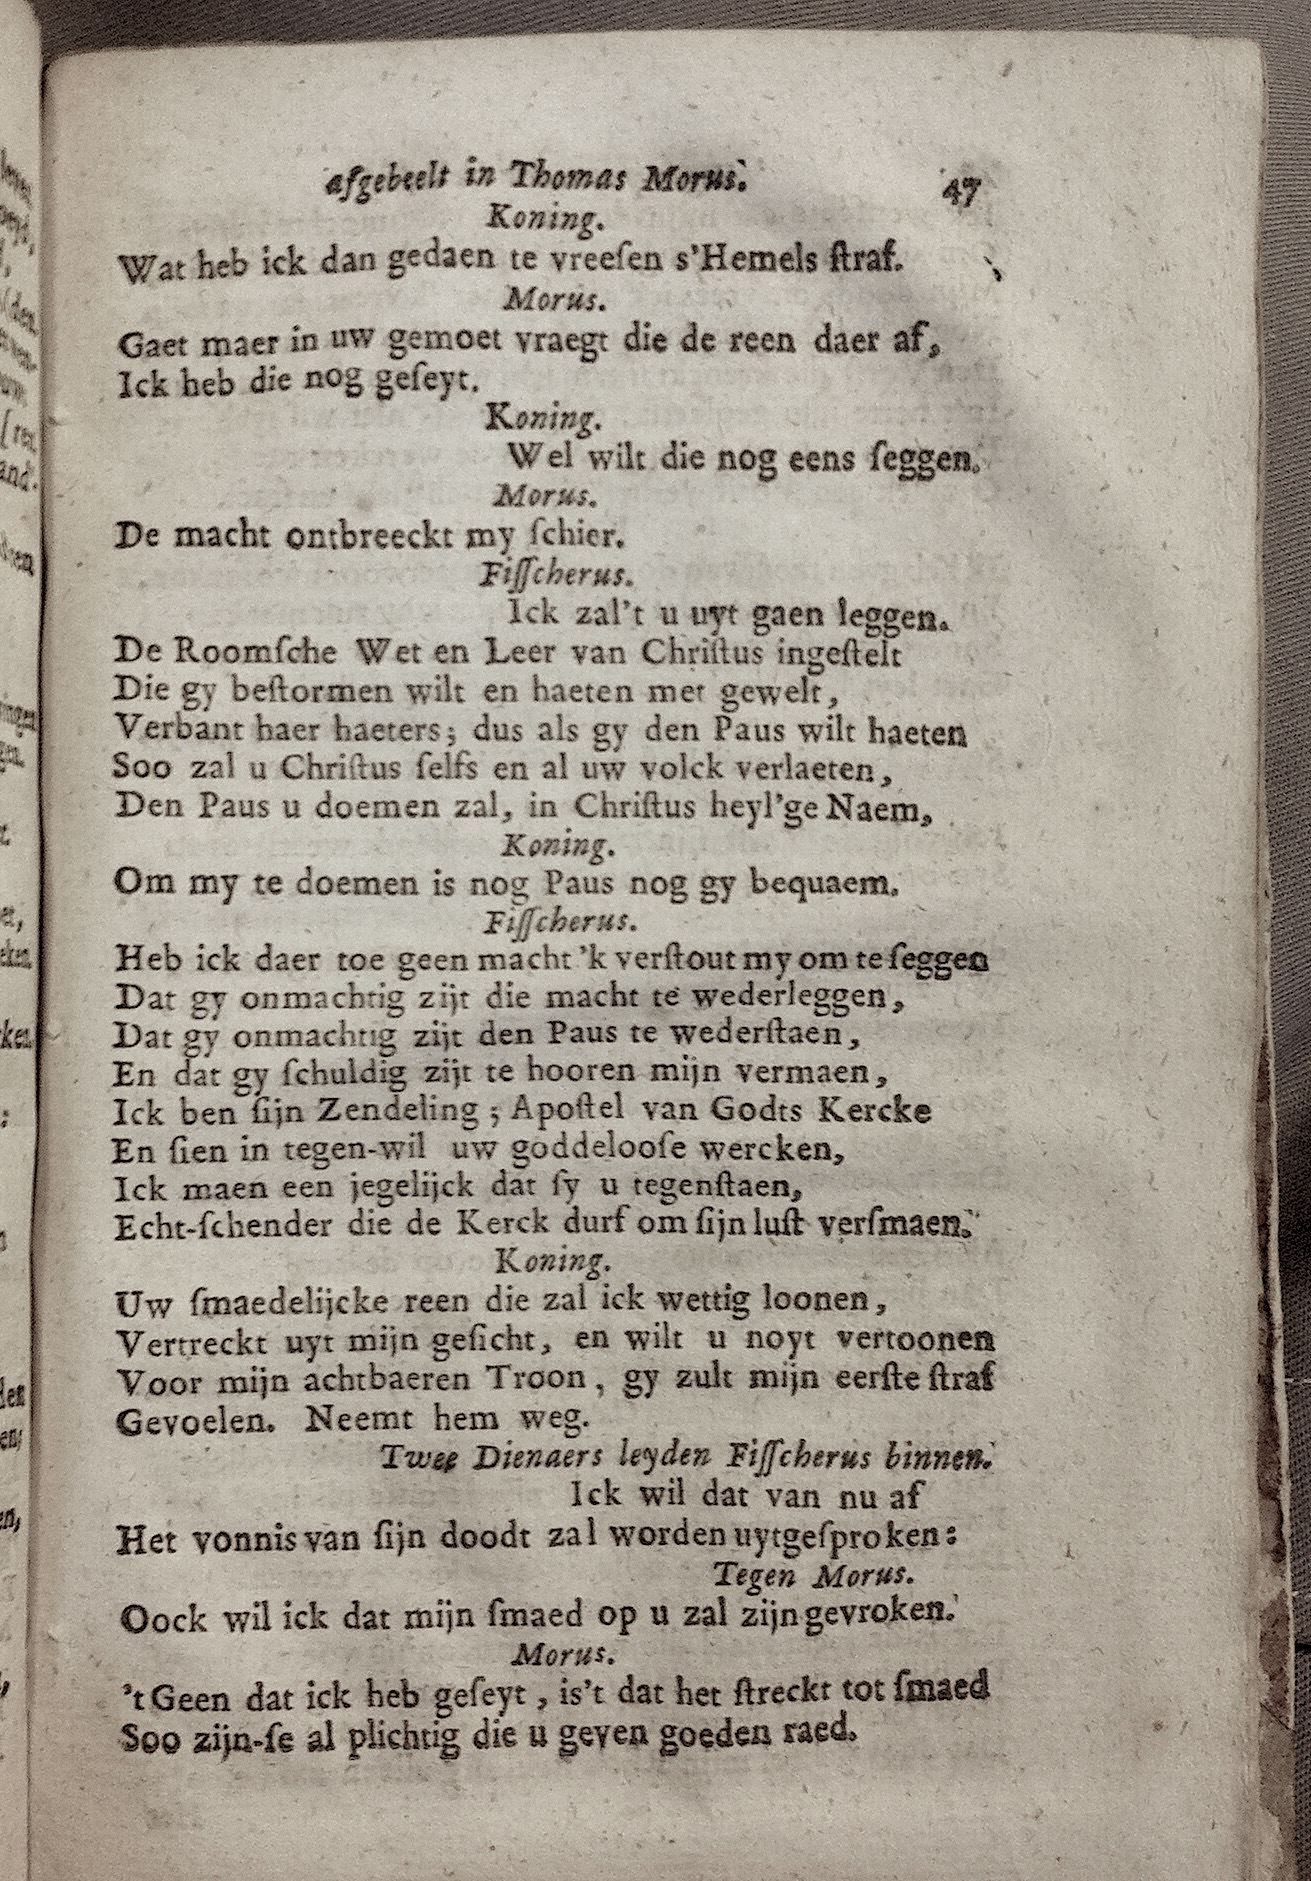 afgebeelt in Thomas Morus. 47
Koning.
Wat heb ick dan gedaen te vreeſen s'Hemels ſtraf.
Morus.
Gaet maer in uw gemoet vraegt die de reen daer af,
Ick heb die nog geſeyt.
Koning.
Wel wilt die nog eens ſeggen.
Morus.
De macht ontbreeckt my ſchier.
Fiſſcherus.
Ick zal't u uyt gaen leggen.
De Roomſche Wet en Leer van Chriſtus ingeſtelt
Die gy beſtormen wilt en haeten met gewelt,
Verbant haer haeters; dus als gy den Paus wilt haeten
Soo zal u Chriſtus ſelfs en al uw volck verlaeten,
Den Paus u doemen zal, in Chriſtus heyl'ge Naem,
Koning.
Om my te doemen is nog Paus nog gy bequaem.
Fiſſcherus.
Heb ick daer toe geen macht 'k verſtout my om te ſeggen
Dat gy onmachtig zijt die macht te wederleggen,
Dat gy onmachtig zijt den Paus te wederſtaen,
En dat gy ſchuldig zijt te hooren mijn vermaen,
Ick ben ſijn Zendeling; Apoſtel van Godts Kercke
En ſien in tegen-wil uw goddelooſe wercken,
Ick maen een jegelijck dat ſy u tegenſtaen,
Echt-ſchender die de Kerck durf om ſijn luſt verſmaen.
Koning.
Uw ſmaedelijcke reen die zal ick wettig loonen,
Vertreckt uyt mijn geſicht, en wilt u noyt vertoonen
Voor mijn achtbaeren Troon, gy zult mijn eerſte ſtraf
Gevoelen. Neemt hem weg.
Twee Dienaers leyden Fiſſcherus binnen.
Ick wil dat van nu af
Het vonnis van ſijn doodt zal worden uytgeſproken:
Tegen Morus.
Oock wil ick dat mijn ſmaed op u zal zijn gevroken.
Morus.
't Geen dat ick heb geſeyt, is't dat het ſtreckt tot ſmaed
Soo zijn-ſe al plichtig die u geven goeden raed.